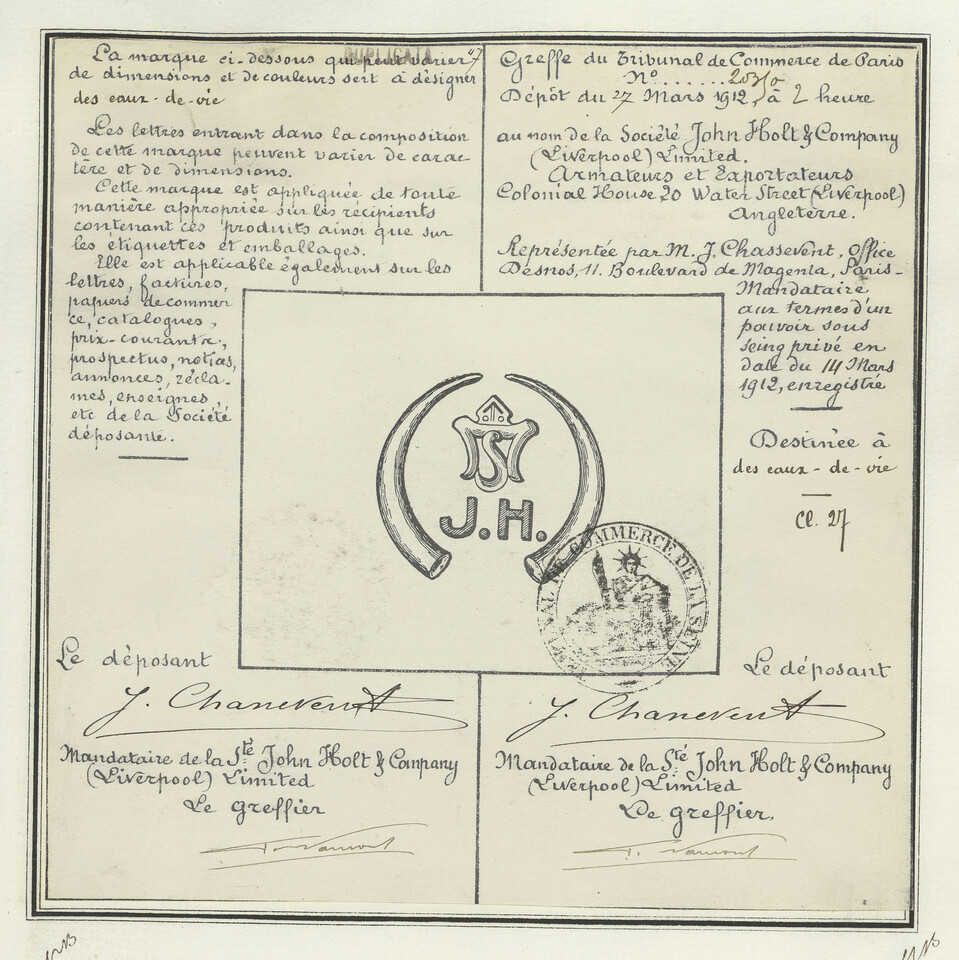 La marque ci-dessous qui peut varier
de dimensions et de couleurs sert à désigner
des eaux-de-vie
Les lettres entrant dans la composition
de cette marque peuvent varier de carac-
tère et de dimensions.
Cette marque est appliquée de toute
manière appropriée sur les récipients
contenant ces produits ainsi que sur
les étiquettes et emballages.
Elle est applicable également sur les
lettres, factures,
papiers de commer
ce, catalogues,
prix-courants,
prospectus, notices,
annonces, récla-
mes, enseignes,
etc de la Société
déposante.
DUPLICATA
Greffe du Tribunal de Commerce de Paris
No.......
Dépôt du 27 Mars 1912, à 2 heure
au nom de la Société John Holt & Company
(Liverpool) Limited.
Armateurs et Exportateurs
Colonial House 20 Water Street (Liverpool)
Angleterre.
Représentée par M. J. Chassevent, Office
Desnos, 11. Boulevard de Magenta, Paris-
Mandataire
aux termes d'un
pouvoir sous
seing privé en
date du 14 Mars
1912, enregistré
Destinée à
des eaux-de-vie
Cl. 27
J.H.
TRIBUNAL DE COMMERCE DE LA SEINE
Le déposant
J. Chassevent
Mandataire de la Sté John Holt & Company
(Liverpool) Limited
Le greffier
Le déposant
J. Chassevent
Mandataire de la Sté John Holt & Company
(Liverpool) Limited
Le greffier.